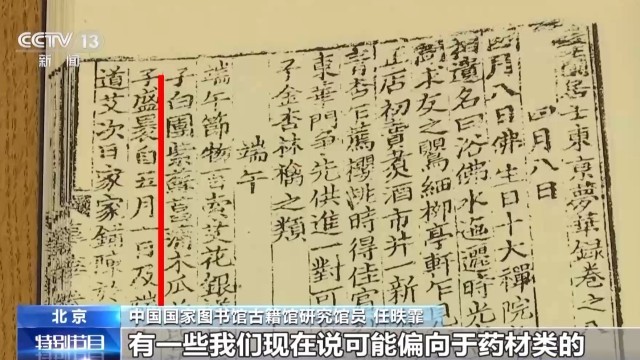 CCTV 13
新闻
居士東京夢華録卷之
四月八日
四月八日佛生日十大禪院
相遺名曰浴佛水迤邐時光
聞求友之鶯細柳亭軒乍見
正店初賣煮酒市井一新
青杏初薦櫻桃時得佳賓
東華門爭先供進一對可
子金杏林檎之類
端午
端午節物百索艾花銀
子白團紫蘇菖蒲木瓜
子盛裹自五月一日及端
道艾次日家家鋪陳於
北京
中国国家图书馆古籍馆研究馆员 任昳霏
特别节目
有一些我们现在说可能偏向于药材类的